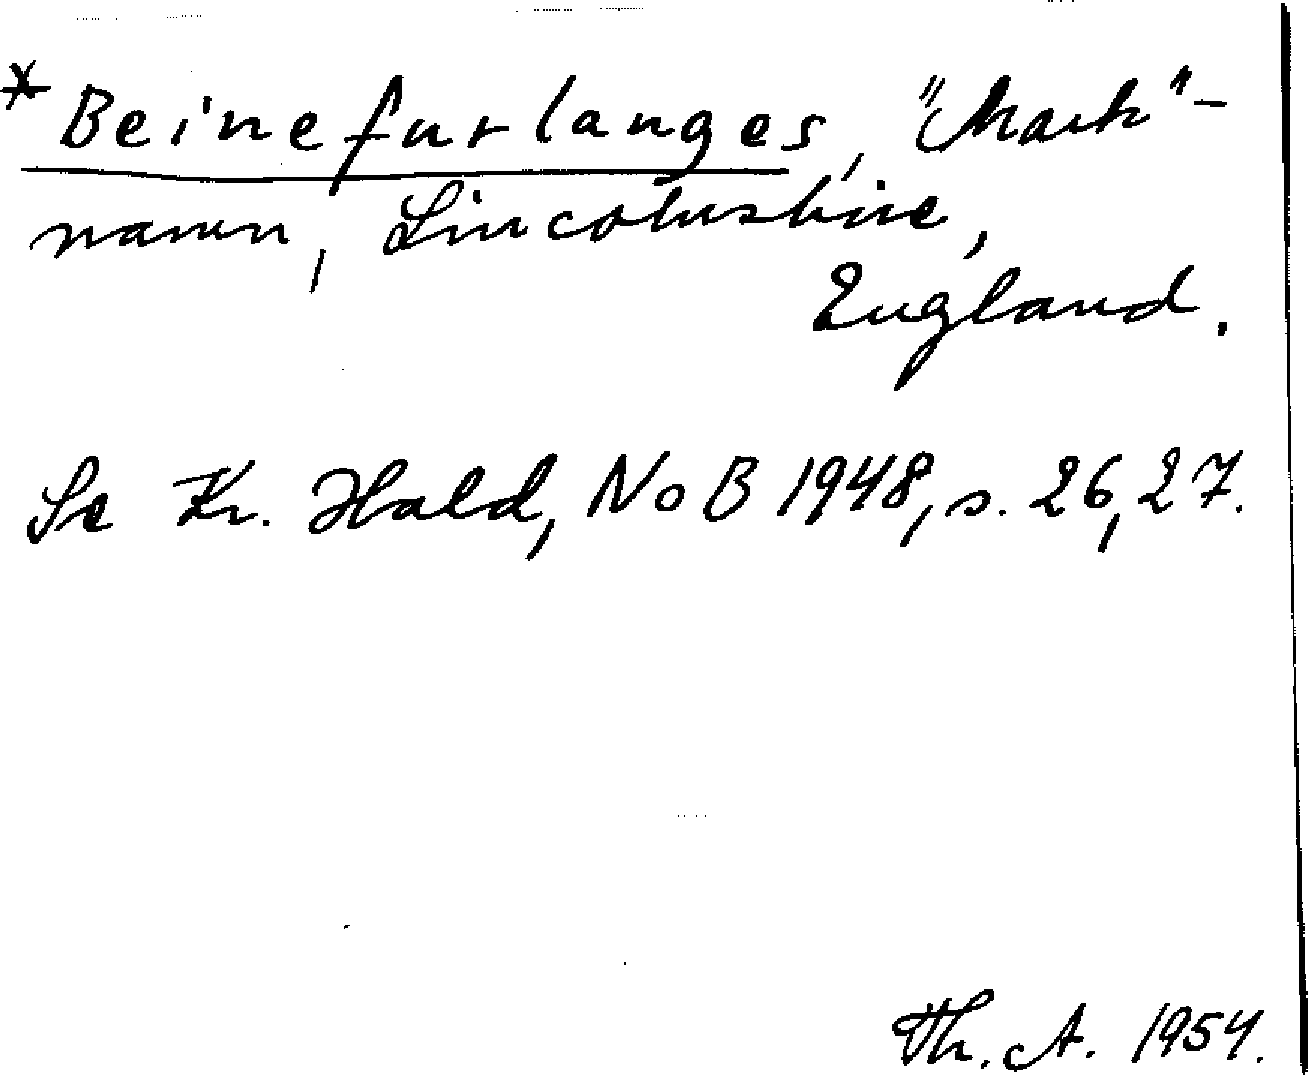 * Beinefurlanges, "Mark"-
namn, Lincolnshire,
England.
Se Kr. Hald, NoB 1948, s. 26, 27.
Th. A. 1954.